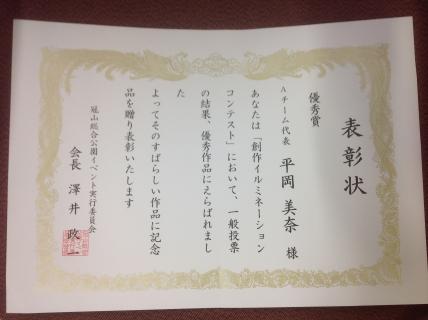 表彰状
優秀賞
Aチーム代表 平岡 美奈 様
あなたは「創作イルミネーション
コンテスト」において、一般投票
の結果、優秀作品にえらばれまし
た
よってそのすばらしい作品に記念
品を贈り表彰いたします
冠山総合公園イベント実行委員会
会長 澤井 政一